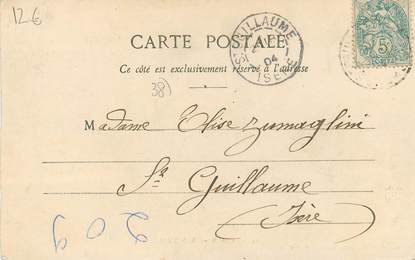 12€
CARTE POSTALE
Ce côté est exclusivement réservé à l'adresse
ST GUILLAUME
04
ISÈRE
5
38)
Madame Elise Zumaglini
St Guillaume
(Isère)
209